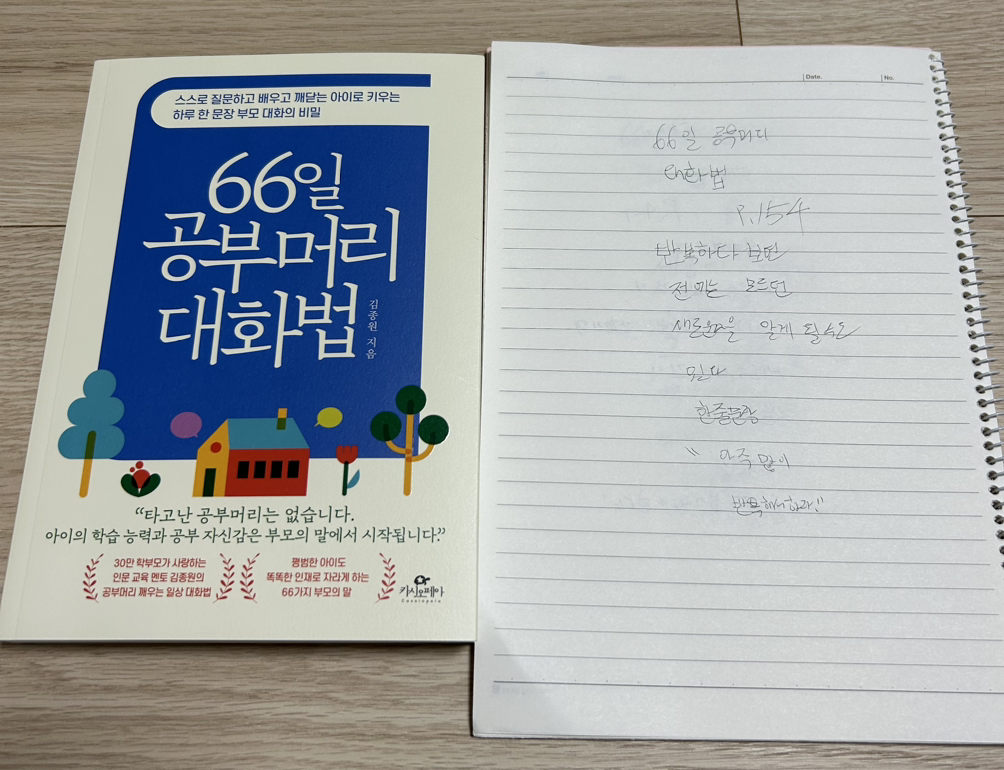 스스로 질문하고 배우고 깨닫는 아이로 키우는
하루 한 문장 부모 대화의 비밀
66일
공부머리
대화법
김종원 지음
“타고난 공부머리는 없습니다.
아이의 학습 능력과 공부 자신감은 부모의 말에서 시작됩니다.”
30만 학부모가 사랑하는
인문 교육 멘토 김종원의
공부머리 깨우는 일상 대화법
평범한 아이도
똑똑한 인재로 자라게 하는
66가지 부모의 말
카시오페아
Cassiopeia
Date. No.
66일 공부머리
대화법
P.154
반복하다 보면
전에는 모르던
새로움을 알게 될 수도
있다
한줄문장
"아주 많이
반복해서 하라!"